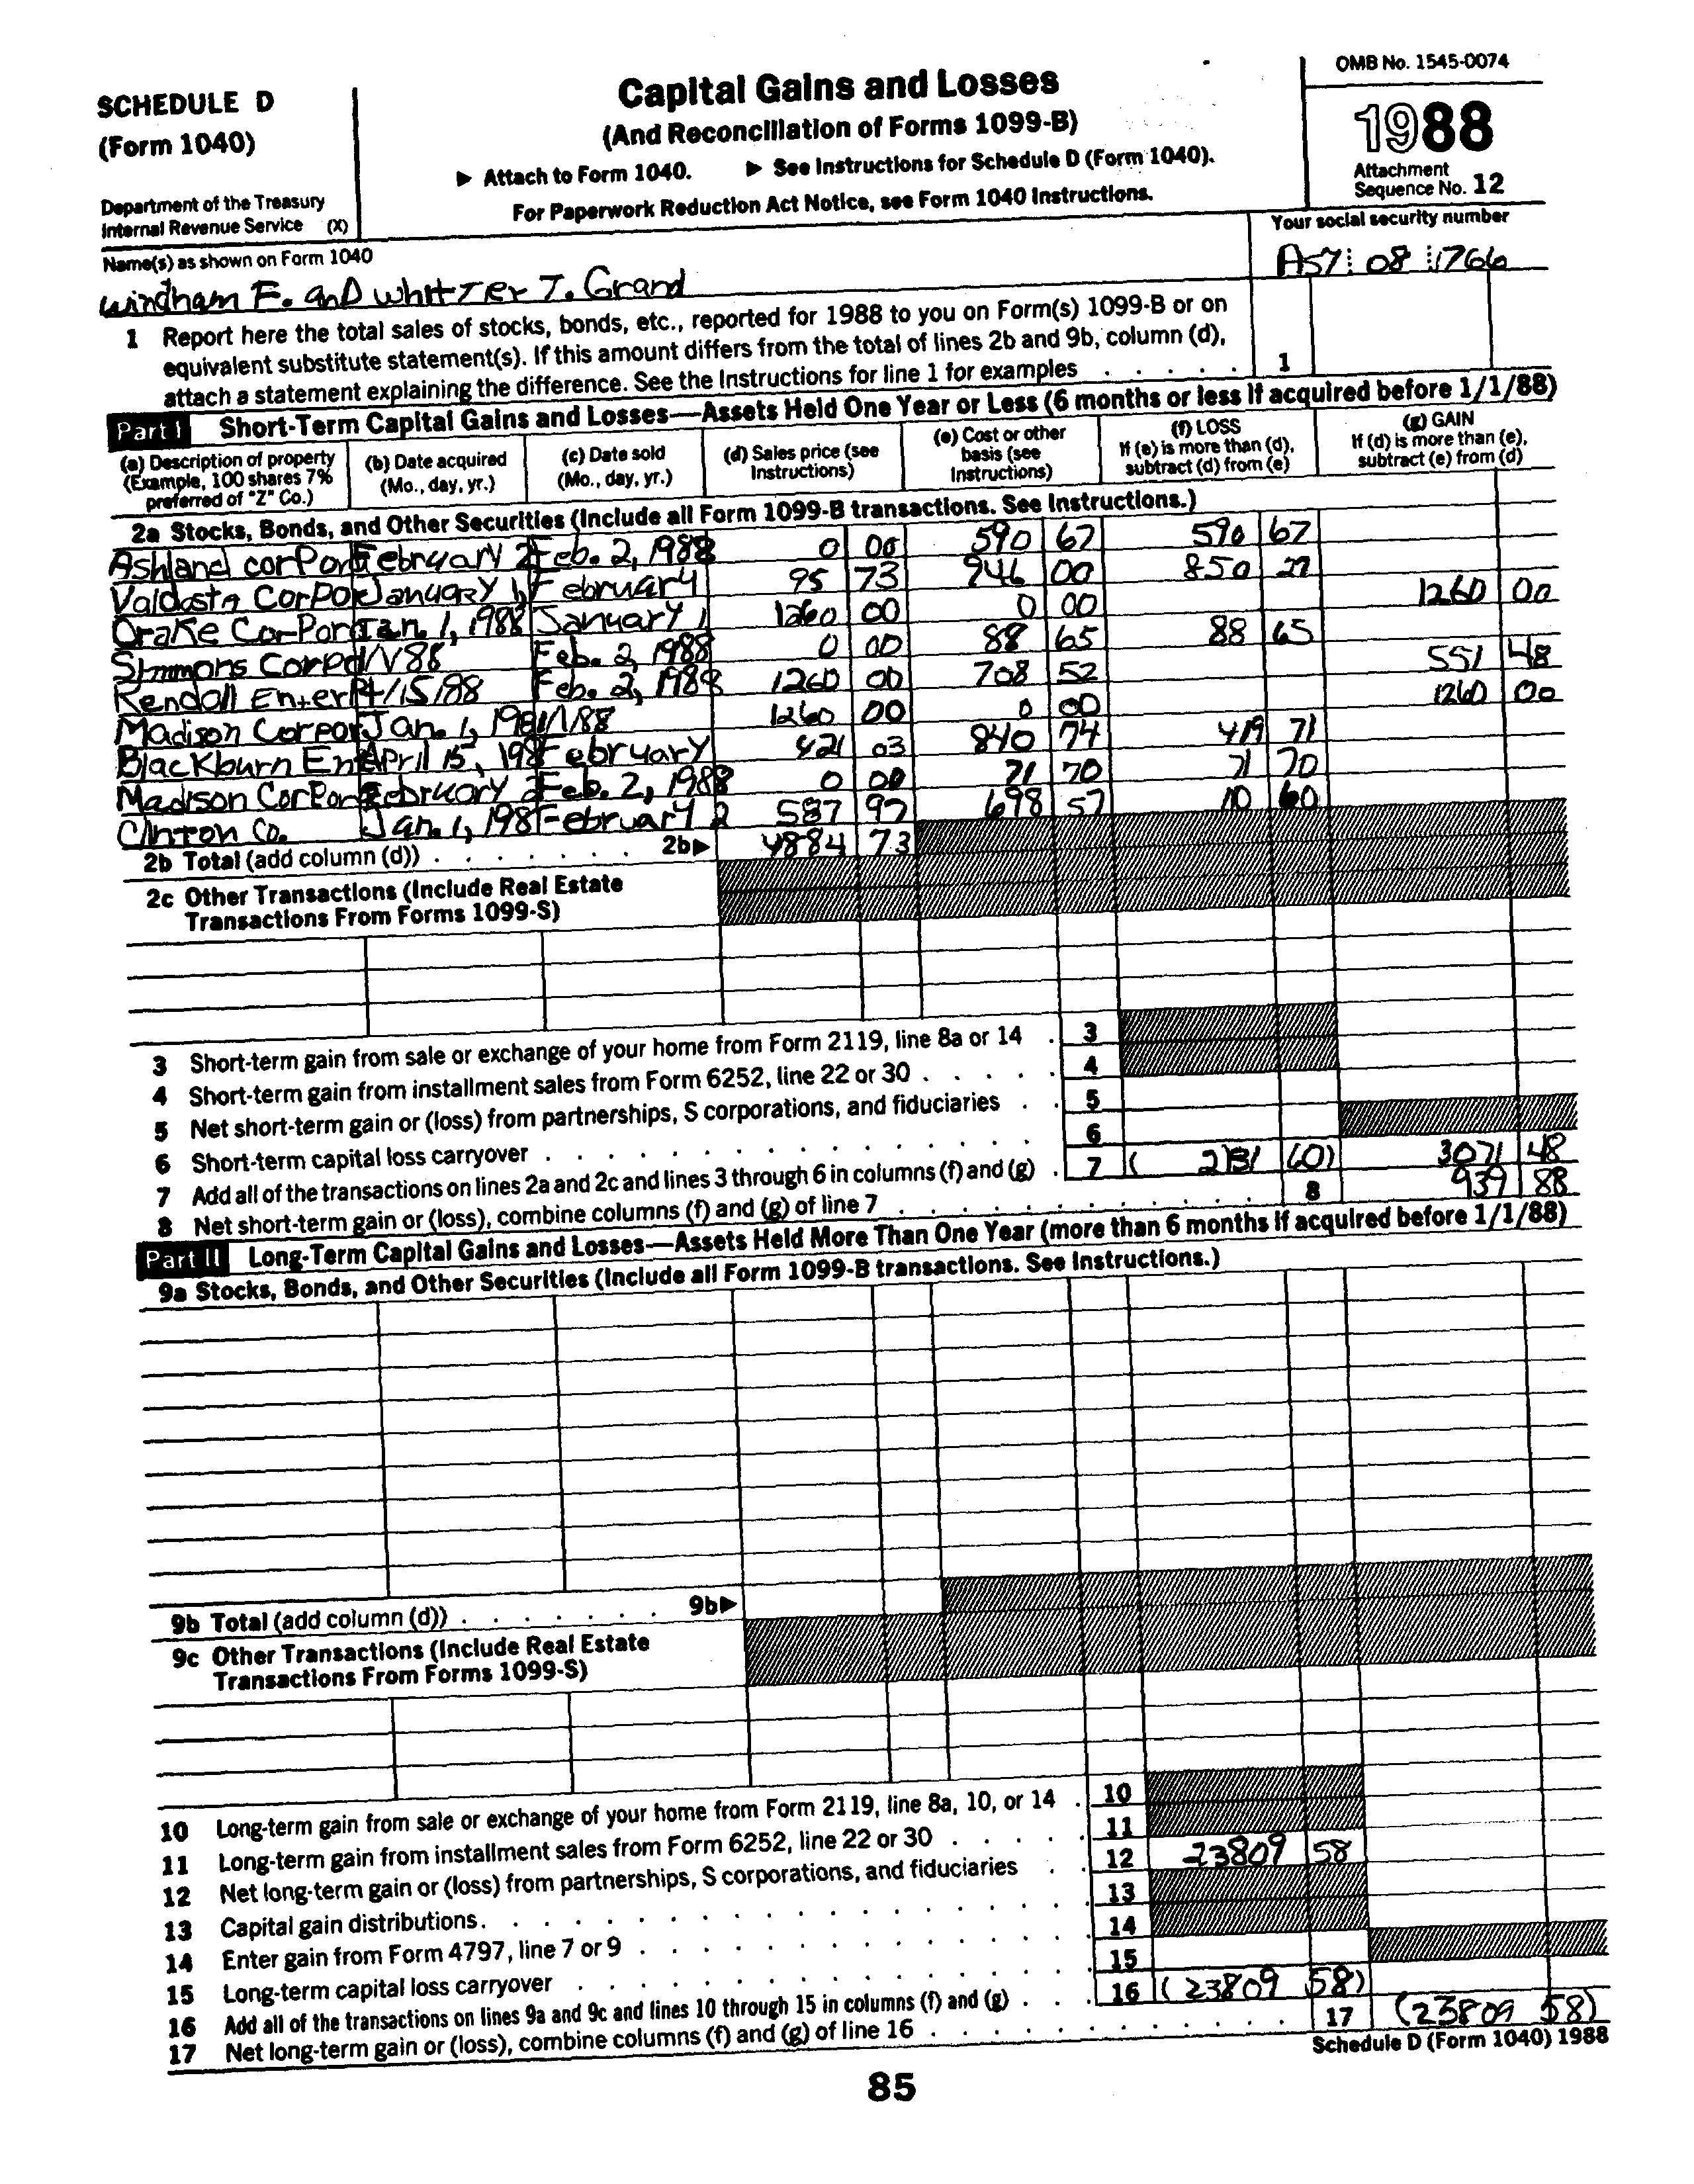 OMB No. 1545-0074
SCHEDULE D
(Form 1040)
Department of the Treasury
Internal Revenue Service (X)
Capital Gains and Losses
(And Reconciliation of Forms 1099-B)
▶ Attach to Form 1040. ▶ See Instructions for Schedule D (Form 1040).
For Paperwork Reduction Act Notice, see Form 1040 Instructions.
1988
Attachment
Sequence No. 12
Name(s) as shown on Form 1040
Windham F. anD WhItTer T. Grand
Your social security number
A57 08 1766
1 Report here the total sales of stocks, bonds, etc., reported for 1988 to you on Form(s) 1099-B or on
equivalent substitute statement(s). If this amount differs from the total of lines 2b and 9b, column (d),
attach a statement explaining the difference. See the Instructions for line 1 for examples . . . . . 1
Part I Short-Term Capital Gains and Losses—Assets Held One Year or Less (6 months or less if acquired before 1/1/88)
(a) Description of property (Example, 100 shares 7% preferred of "Z" Co.)
(b) Date acquired (Mo., day, yr.)
(c) Date sold (Mo., day, yr.)
(d) Sales price (see Instructions)
(e) Cost or other basis (see Instructions)
(f) LOSS If (e) is more than (d), subtract (d) from (e)
(g) GAIN If (d) is more than (e), subtract (e) from (d)
2a Stocks, Bonds, and Other Securities (Include all Form 1099-B transactions. See Instructions.)
Ashland corPor February 2 Feb. 2, 1988 0 00 590 67 590 67
Valdosta CorPor January 1, February 95 73 946 00 850 27
Drake CorPor Jan. 1, 1988 January 1 1260 00 0 00 1260 00
Simmons Corpo 1/1/88 Feb. 2, 1988 0 00 88 65 88 65
Kendall EnterP 4/15/88 Feb. 2, 1988 1260 00 708 52 551 48
Madison Corpor Jan. 1, 198 1/1/88 1260 00 0 00 1260 00
Blackburn Ent April 15, 198 February 421 03 840 74 419 71
Madison CorPor February 2 Feb. 2, 1988 0 00 71 70 71 70
Clinton Co. Jan. 1, 198 February 2 587 97 698 57 110 60
2b Total (add column (d)) . . . . . . . 2b▶ 4884 73
2c Other Transactions (Include Real Estate
Transactions From Forms 1099-S)
3 Short-term gain from sale or exchange of your home from Form 2119, line 8a or 14 . 3
4 Short-term gain from installment sales from Form 6252, line 22 or 30 . . . . . 4
5 Net short-term gain or (loss) from partnerships, S corporations, and fiduciaries . . 5
6 Short-term capital loss carryover . . . . . . . . . . . . . . 6
7 Add all of the transactions on lines 2a and 2c and lines 3 through 6 in columns (f) and (g) . 7 ( 2131 60) 3071 48
8 Net short-term gain or (loss), combine columns (f) and (g) of line 7 . . . . . . . . . . . 8 939 88
Part II Long-Term Capital Gains and Losses—Assets Held More Than One Year (more than 6 months if acquired before 1/1/88)
9a Stocks, Bonds, and Other Securities (Include all Form 1099-B transactions. See Instructions.)
9b Total (add column (d)) . . . . . . . 9b▶
9c Other Transactions (Include Real Estate
Transactions From Forms 1099-S)
10 Long-term gain from sale or exchange of your home from Form 2119, line 8a, 10, or 14 . 10
11 Long-term gain from installment sales from Form 6252, line 22 or 30 . . . . . 11
12 Net long-term gain or (loss) from partnerships, S corporations, and fiduciaries . . 12 -23809 58
13 Capital gain distributions. . . . . . . . . . . . . . . . 13
14 Enter gain from Form 4797, line 7 or 9 . . . . . . . . . . . 14
15 Long-term capital loss carryover . . . . . . . . . . . . . 15
16 Add all of the transactions on lines 9a and 9c and lines 10 through 15 in columns (f) and (g) . . . 16 ( 23809 58)
17 Net long-term gain or (loss), combine columns (f) and (g) of line 16 . . . . . . . . . . . . 17 (23809 58)
Schedule D (Form 1040) 1988
85